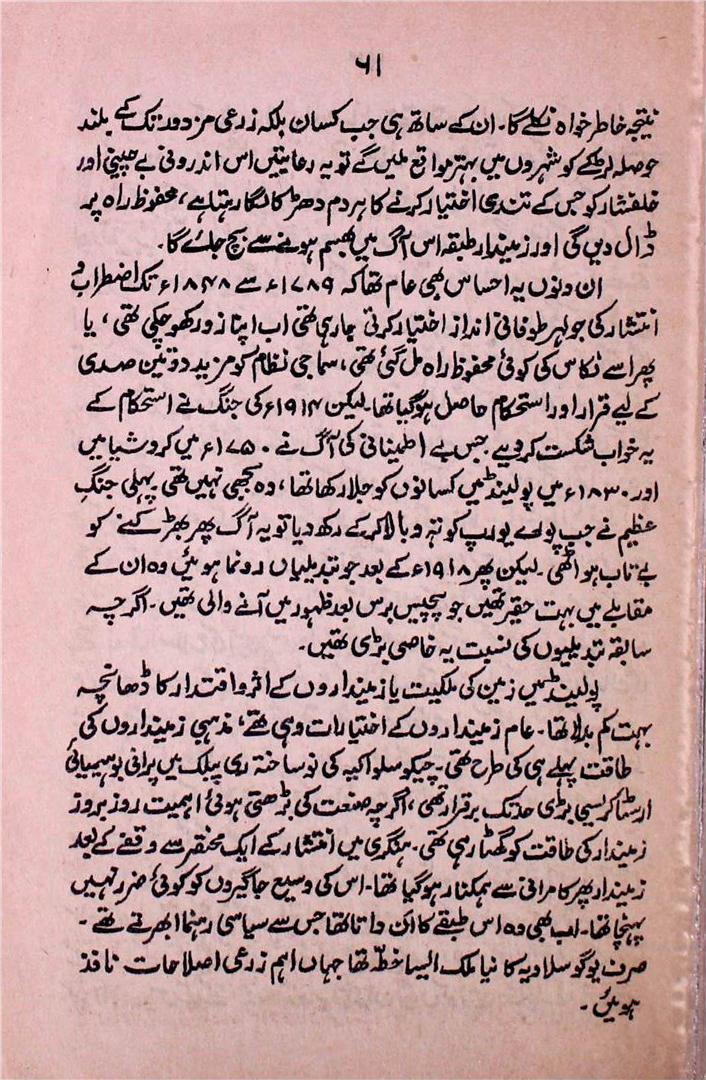 ۶۱
نتیجہ خاطر خواہ نکلے گا۔ ان کے ساتھ ہی جب کسان بلکہ زرعی مزدور تک کے بلند
حوصلہ لڑکے کو شہروں میں بہتر مواقع ملیں گے تو یہ رعایتیں اس اندرونی بے چینی اور
خلفشار کو جس کے تندی اختیار کرنے کا ہر دم دھڑکا لگا رہتا ہے، محفوظ راہ پر
ڈال دیں گی اور زمیندار طبقہ اس آگ میں بھسم ہونے سے بچ جائے گا۔
ان دنوں یہ احساس بھی عام تھا کہ ۱۷۸۹ء سے ۱۸۴۸ء تک اضطراب و
انتشار کی جو لہر طوفانی انداز اختیار کرتی جا رہی تھی اب اپنا زور کھو چکی تھی، یا
پھر اسے نکاس کی کوئی محفوظ راہ مل گئی تھی، سماجی نظام کو مزید دو تین صدی
کے لیے قرار اور استحکام حاصل ہو گیا تھا۔ لیکن ۱۹۱۴ء کی جنگ نے استحکام کے
یہ خواب شکست کر دیے۔ جس بے اطمینانی کی آگ نے ۱۷۵۰ء میں کروشیا میں
اور ۱۸۳۰ء میں پولینڈ میں کسانوں کو جلا رکھا تھا، وہ بجھی نہیں تھی پہلی جنگِ
عظیم نے جب پورے یورپ کو تہہ و بالا کر کے رکھ دیا تو یہ آگ پھر بھڑکنے کو
بے تاب ہو اُٹھی۔ لیکن پھر ۱۹۱۸ء کے بعد جو تبدیلیاں رونما ہوئیں وہ ان کے
مقابلے میں بہت حقیر تھیں جو پچیس برس بعد ظہور میں آنے والی تھیں۔ اگرچہ
سابقہ تبدیلیوں کی نسبت یہ خاصی بڑی تھیں۔
پولینڈ میں زمین کی ملکیت یا زمینداروں کے اثر و اقتدار کا ڈھانچہ
بہت کم بدلا تھا۔ عام زمینداروں کے اختیارات وہی تھے، مذہبی زمینداروں کی
طاقت پہلے ہی کی طرح تھی۔ چیکوسلواکیہ کی نوساختہ ری پبلک میں پرانی بوہیمیائی
ارسٹاکریسی بڑی حد تک برقرار تھی، اگرچہ صنعت کی بڑھتی ہوئی اہمیت روز بروز
زمیندار کی طاقت کو گھٹا رہی تھی۔ ہنگری میں انتشار کے ایک مختصر سے وقفے کے بعد
زمیندار پھر کامرانی سے ہمکنار ہو گیا تھا۔ اس کی وسیع جاگیروں کو کوئی ضرر نہیں
پہنچا تھا۔ اب بھی وہ اس طبقے کا ان داتا تھا جس سے سیاسی رہنما ابھرتے تھے۔
صرف یوگوسلاویہ کا نیا ملک ایسا خطّہ تھا جہاں اہم زرعی اصلاحات نافذ
ہوئیں۔